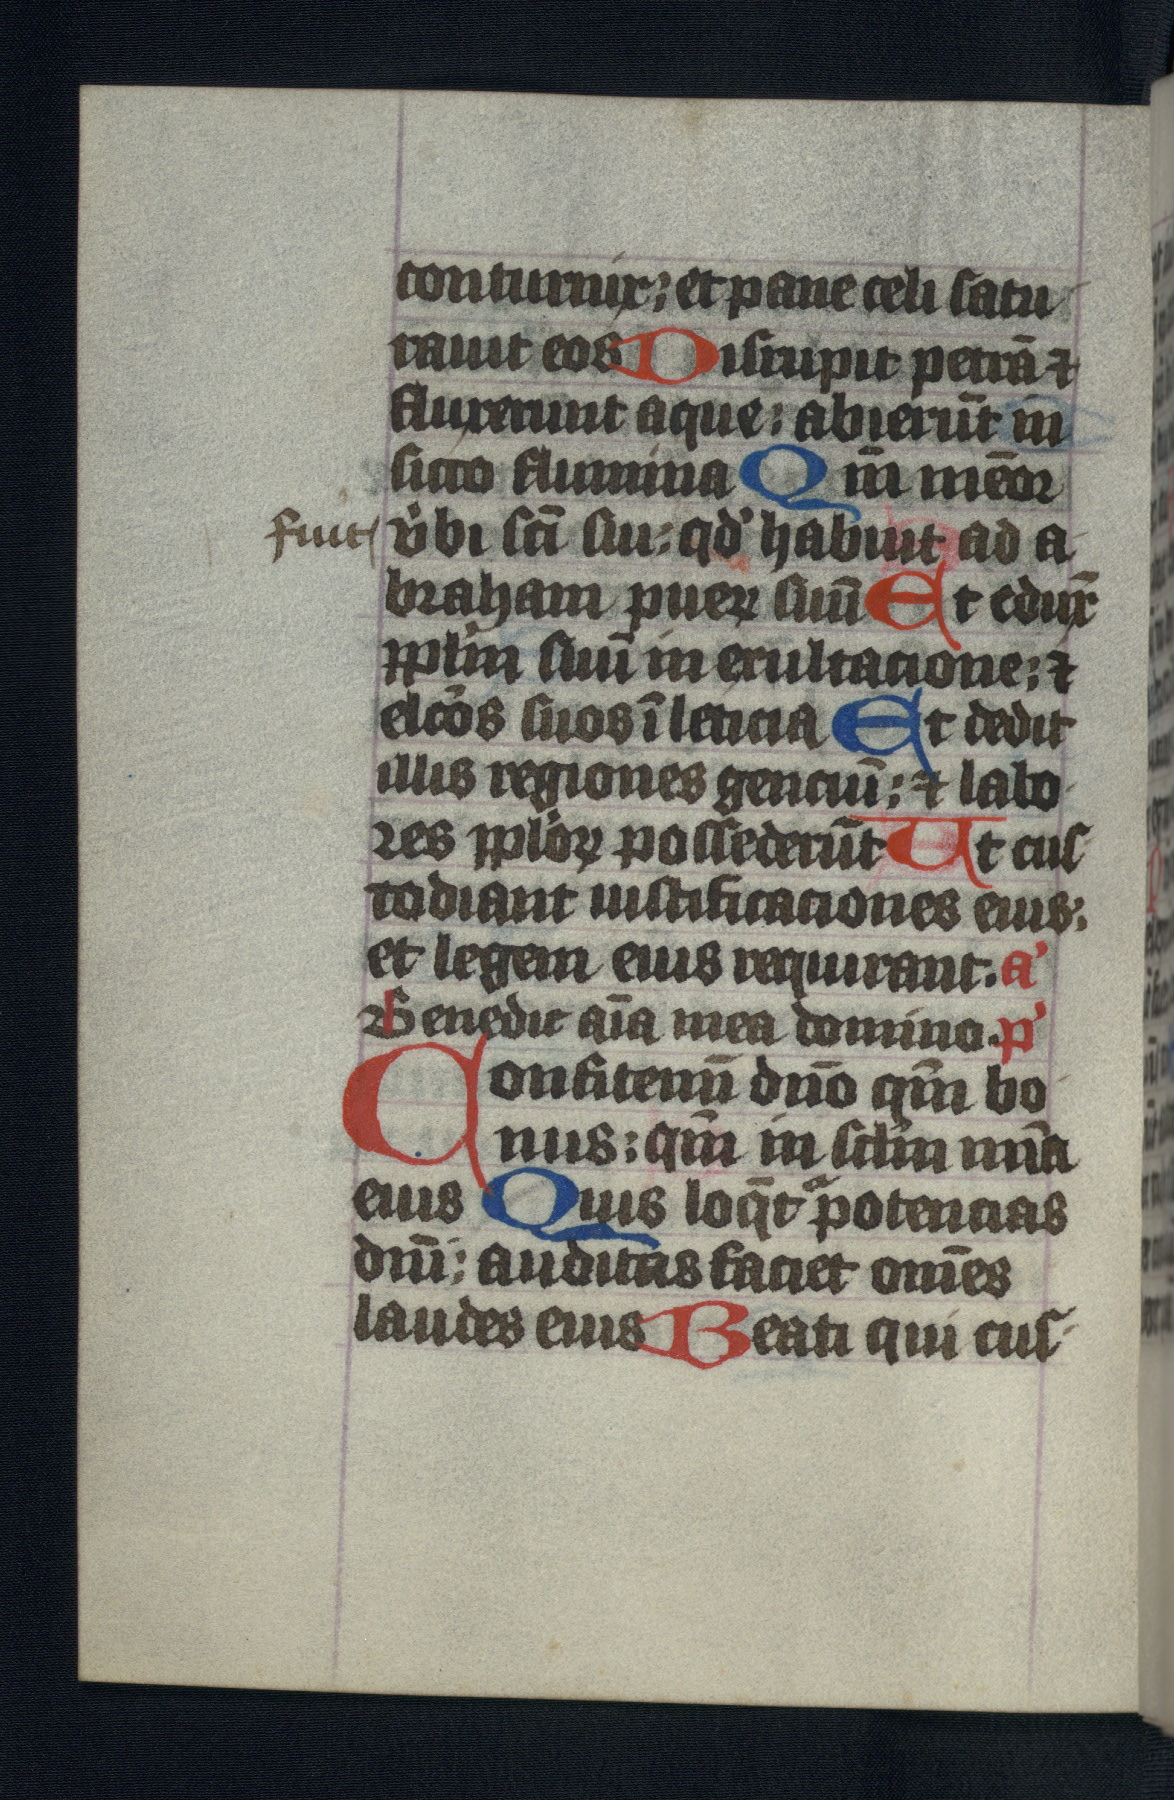 conturnix; et pane celi satu
rauit eos Disrupit petrā ⁊
fluxerunt aque: abierūt in
sicco flumina Qm̄ mēor
fuit v̓bi scī sui: qd̓ habuit ad a
braham pueꝝ suū Et edux̄
ppl̓m suū in exultacione; ⁊
elcōs suos ī leticia Et dedit
illis regiones genciū; ⁊ labo
res ppl̓oꝝ possederūt Ut cus
todiant iustificaciones eius:
et legem eius requirant. a̓
Benedic aīa mea domino. p̓
Confitemī dn̄o qm̄ bo
nus: qm̄ in sclm̄ mīa
eius Quis loq̄tᷣ potencias
dn̄i: auditas faciet om̄es
laudes eius Beati qui cus